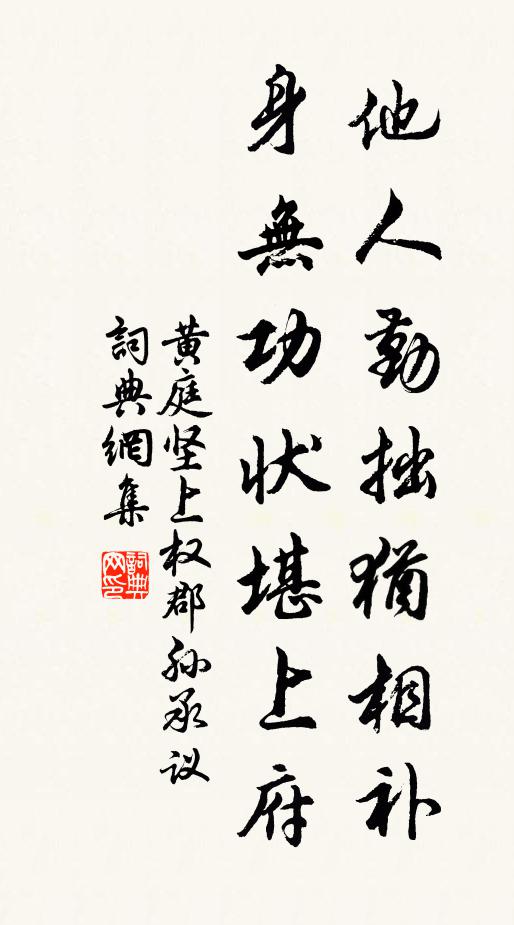 他人勤拙猶相补
身無功状堪上府
黄庭坚上权郡孙承议
詞典網集
詞典網印